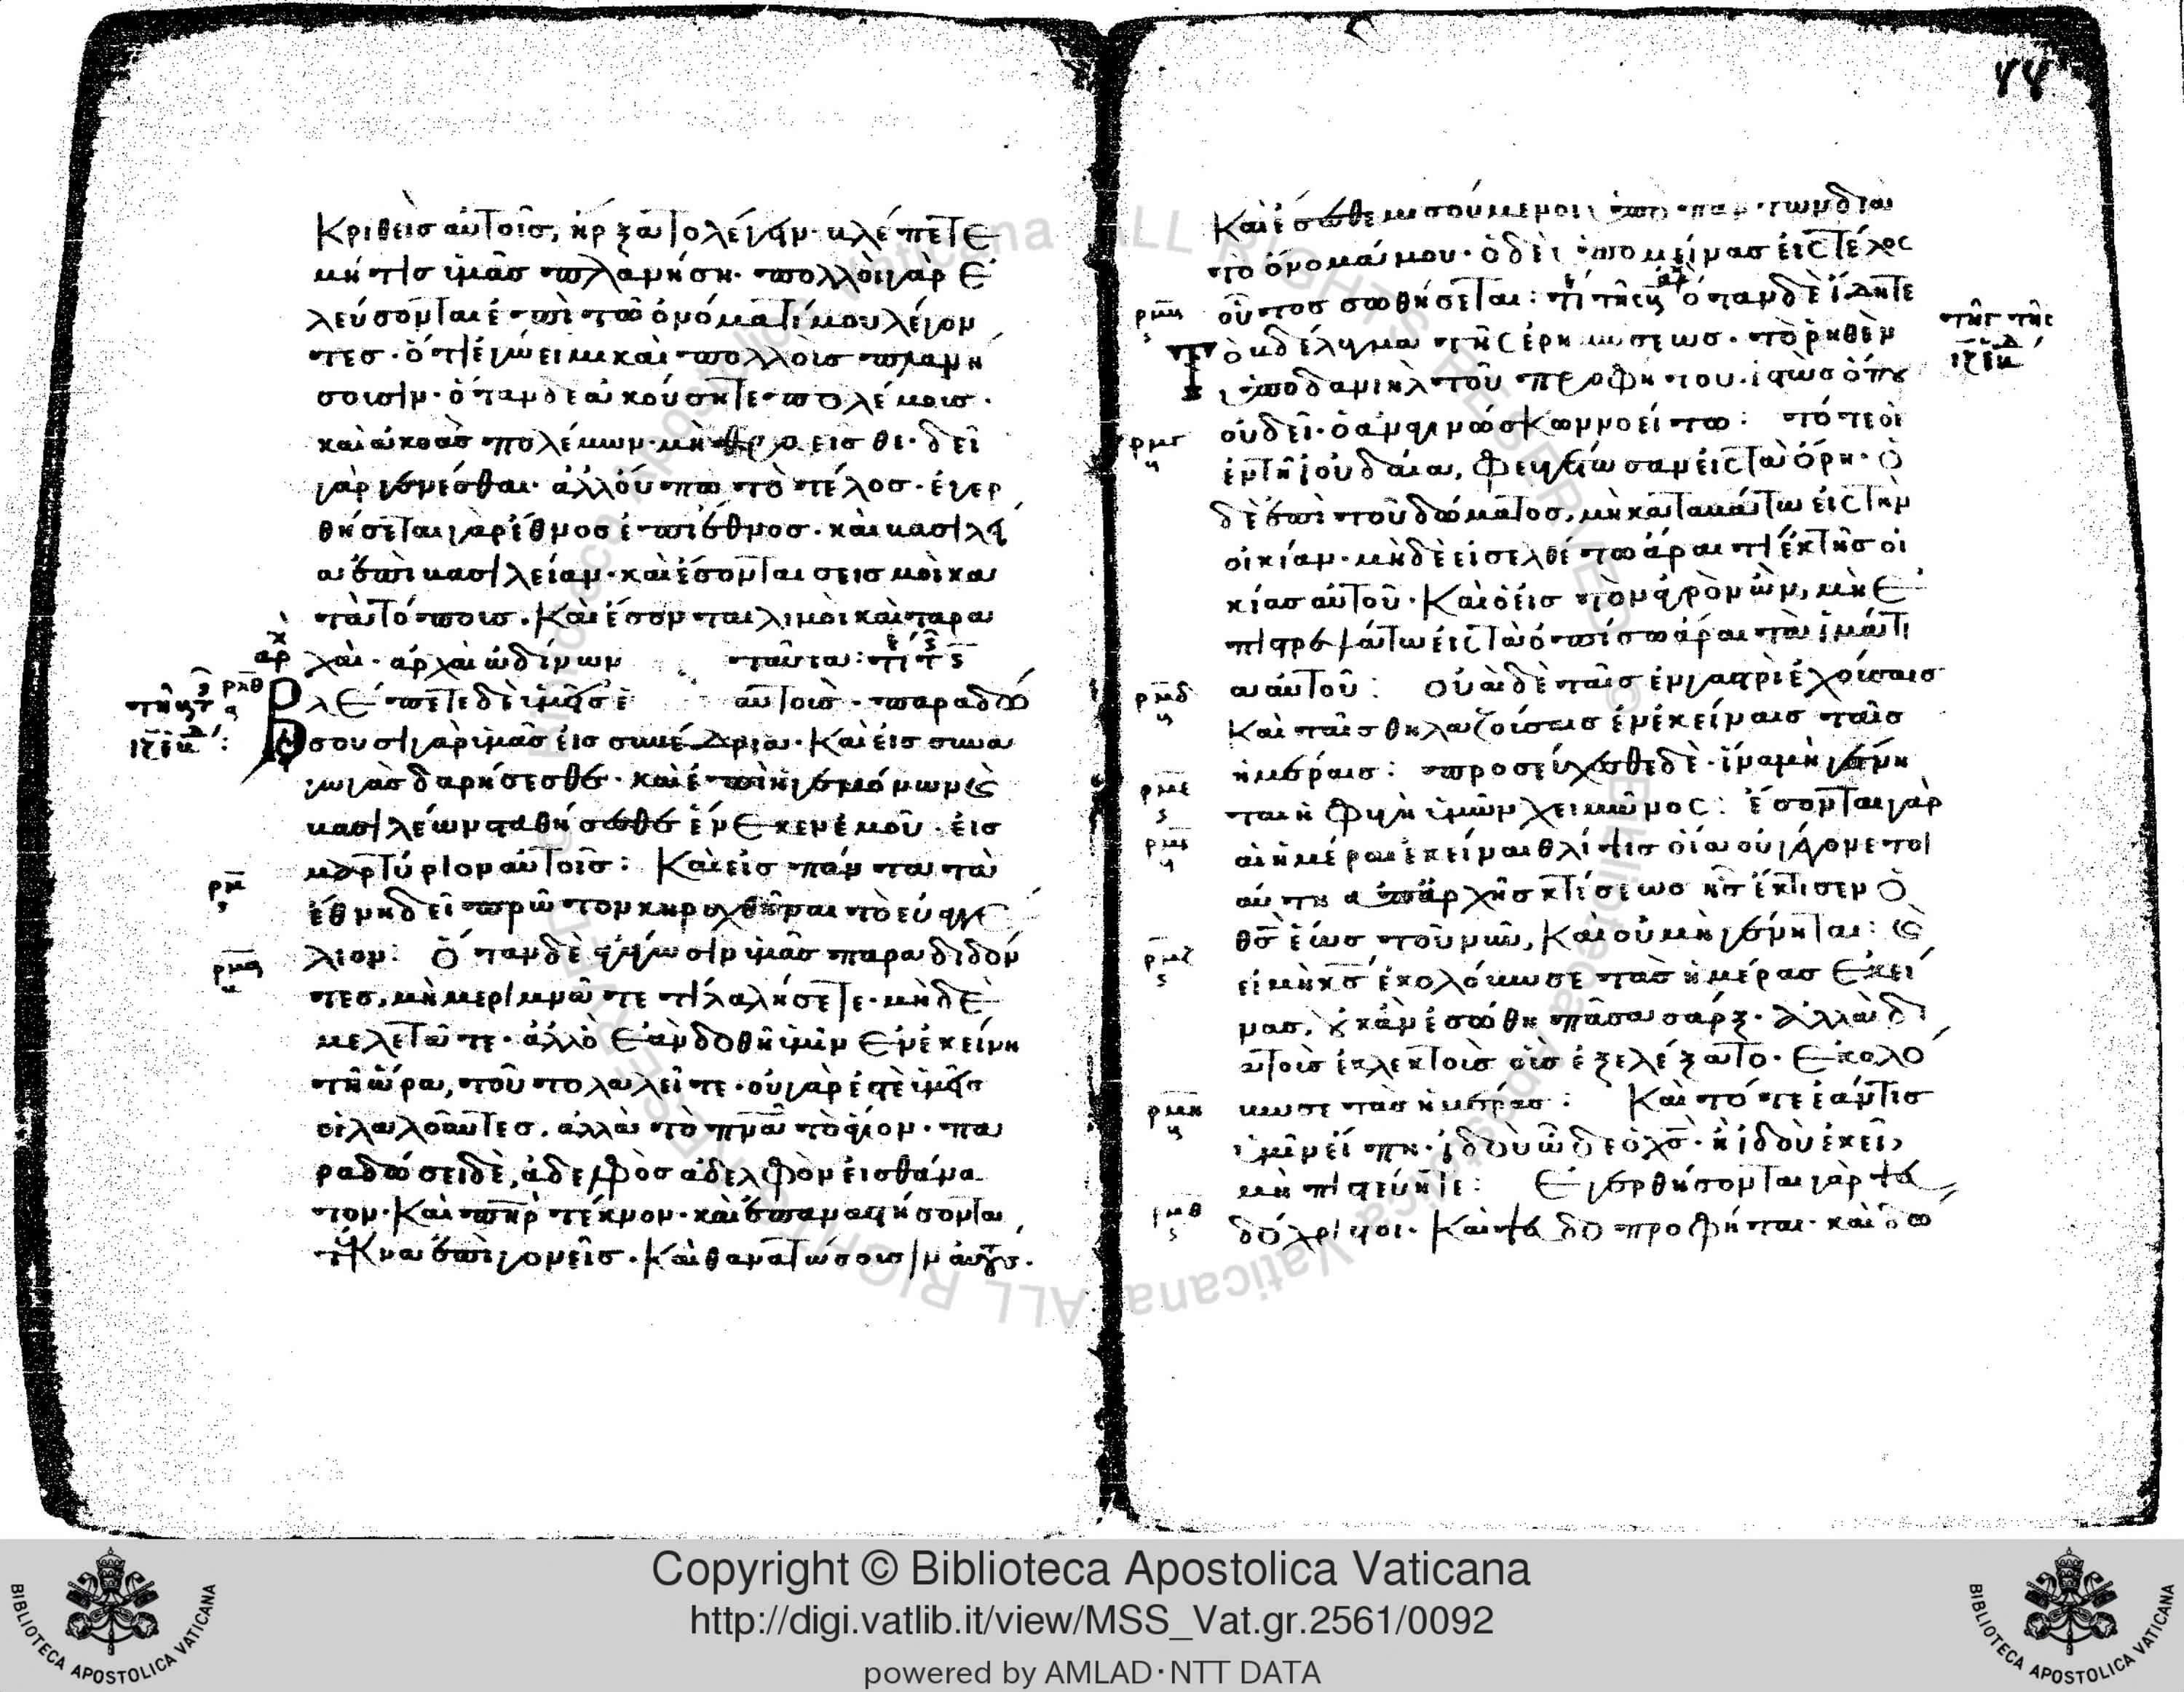 κριθεὶς αὐτοῖς, ἤρξατο λέγειν· βλέπετε
μή τις ὑμᾶς πλανήση· πολλοὶ γὰρ ἐ
λεύσονται ἐπὶ τῶ ὀνόματί μου λέγον
τες· ὅτι ἐγώ εἰμι καὶ πολλοὺς πλανή
σουσιν· ὅταν δὲ ἀκούσητε πολέμους·
καὶ ἀκοὰς πολέμων· μὴ θροεῖσθε· δεῖ
γὰρ γενέσθαι· ἀλλ' οὔπω τὸ τέλος· ἐγερ
θήσεται γὰρ ἔθνος ἐπὶ ἔθνος· καὶ βασιλεί
α ἐπὶ βασιλείαν· καὶ ἔσονται σεισμοὶ κα
τὰ τόπους· Καὶ ἔσονται λιμοὶ καὶ ταρα
χαί· ἀρχαὶ ὠδίνων ταῦτα:
ρλθ
Βλέπετε δὲ ὑμεῖς ἑαυτούς· παραδώ
σουσι γὰρ ὑμᾶς εἰς συνέδρια· Καὶ εἰς συνα
γωγὰς δαρήσεσθε· καὶ ἐπὶ ἡγεμόνων καὶ
βασιλέων σταθήσεσθε ἕνεκεν ἐμοῦ· εἰς
μαρτύριον αὐτοῖς: Καὶ εἰς πάντα τὰ
ρμ
ἔθνη δεῖ πρῶτον κηρυχθῆναι τὸ εὐαγγέ
λιον: Ὅταν δὲ ἄγωσιν ὑμᾶς παραδιδόν
ρμα
τες, μὴ μεριμνᾶτε τί λαλήσετε· μὴ δὲ
μελετᾶτε· ἀλλ' ὃ ἐὰν δοθῆ ὑμῖν ἐν ἐκείνη
τῆ ὥρα, τοῦτο λαλεῖτε· οὐ γάρ ἐστε ὑμεῖς
οἱ λαλοῦντες, ἀλλὰ τὸ πνα τὸ ἅγιον· πα
ραδώσει δὲ, ἀδελφὸς ἀδελφὸν εἰς θάνα
τον· Καὶ πηρ τέκνον· καὶ ἐπαναστήσονται
τέκνα ἐπὶ γονεῖς· Καὶ θανατώσουσιν αὐτούς·
44
Καὶ ἔσεσθε μισούμενοι ὑπὸ πάντων διὰ
τὸ ὄνομά μου· ὁ δὲ ὑπομείνας εἰς τέλος
ρμβ
οὗτος σωθήσεται: ὅταν δὲ ἴδητε
Τὸ βδέλυγμα τῆς ἐρημώσεως· τὸ ῥηθὲν
ὑπὸ δανιὴλ τοῦ προφήτου· ἑστὼς ὅπου
οὐ δεῖ· ὁ ἀναγινώσκων νοείτω: τότε οἱ
ρμγ
ἐν τῆ ἰουδαία, φευγέτωσαν εἰς τὰ ὄρη· ὁ
δὲ ἐπὶ τοῦ δώματος, μὴ καταβάτω εἰς τὴν
οἰκίαν· μὴ δὲ εἰσελθέτω ἆραί τι ἐκ τῆς οἰ
κίας αὐτοῦ· Καὶ ὁ εἰς τὸν ἀγρὸν ὢν, μὴ ἐ
πιστρεψάτω εἰς τὰ ὀπίσω ἆραι τὰ ἱμάτι
α αὐτοῦ: οὐαὶ δὲ ταῖς ἐν γαστρὶ ἐχούσαις
ρμδ
Καὶ ταῖς θηλαζούσαις ἐν ἐκείναις ταῖς
ἡμέραις: προσεύχεσθε δὲ· ἵνα μὴ γένη
ρμε
ται ἡ φυγὴ ὑμῶν χειμῶνος: ἔσονται γὰρ
ρμς
αἱ ἡμέραι ἐκεῖναι θλίψις οἵα οὐ γέγονε τοι
αύτη ἀπ' ἀρχῆς κτίσεως ἧς ἔκτισεν ὁ
θς ἕως τοῦ νῦν, Καὶ οὐ μὴ γένηται: καὶ
ρμζ
εἰ μὴ κς ἐκολόβωσε τὰς ἡμέρας ἐκεί
νας, οὐκ ἂν ἐσώθη πᾶσα σάρξ· ἀλλὰ δι
ὰ τοὺς ἐκλεκτοὺς οὓς ἐξελέξατο· ἐκολό
βωσε τὰς ἡμέρας: Καὶ τότε ἐάν τις
ρμη
ὑμῖν εἴπη· ἰδοὺ ὧδε ὁ χς· ἢ ἰδοὺ ἐκεῖ,
μὴ πιστεύητε: Ἐγερθήσονται γὰρ ψευ
ρμθ
δόχριστοι· Καὶ ψευδοπροφῆται· καὶ δώ
Copyright © Biblioteca Apostolica Vaticana
http://digi.vatlib.it/view/MSS_Vat.gr.2561/0092
powered by AMLAD·NTT DATA
BIBLIOTECA APOSTOLICA VATICANA
BIBLIOTECA APOSTOLICA VATICANA